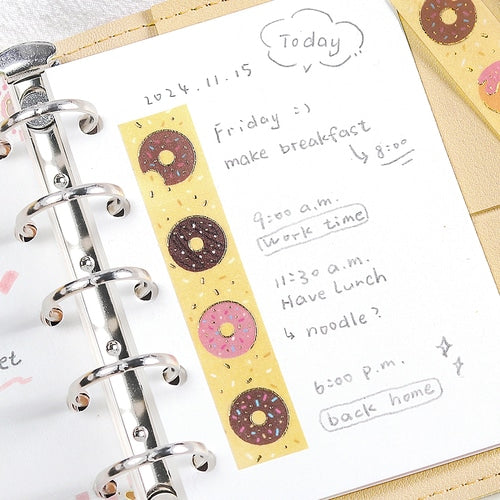 Today
2024.11.15
Friday :)
make breakfast
↳ 8:00
9:00 a.m.
Work time
11:30 a.m.
Have Lunch
↳ noodle?
6:00 p.m.
back home